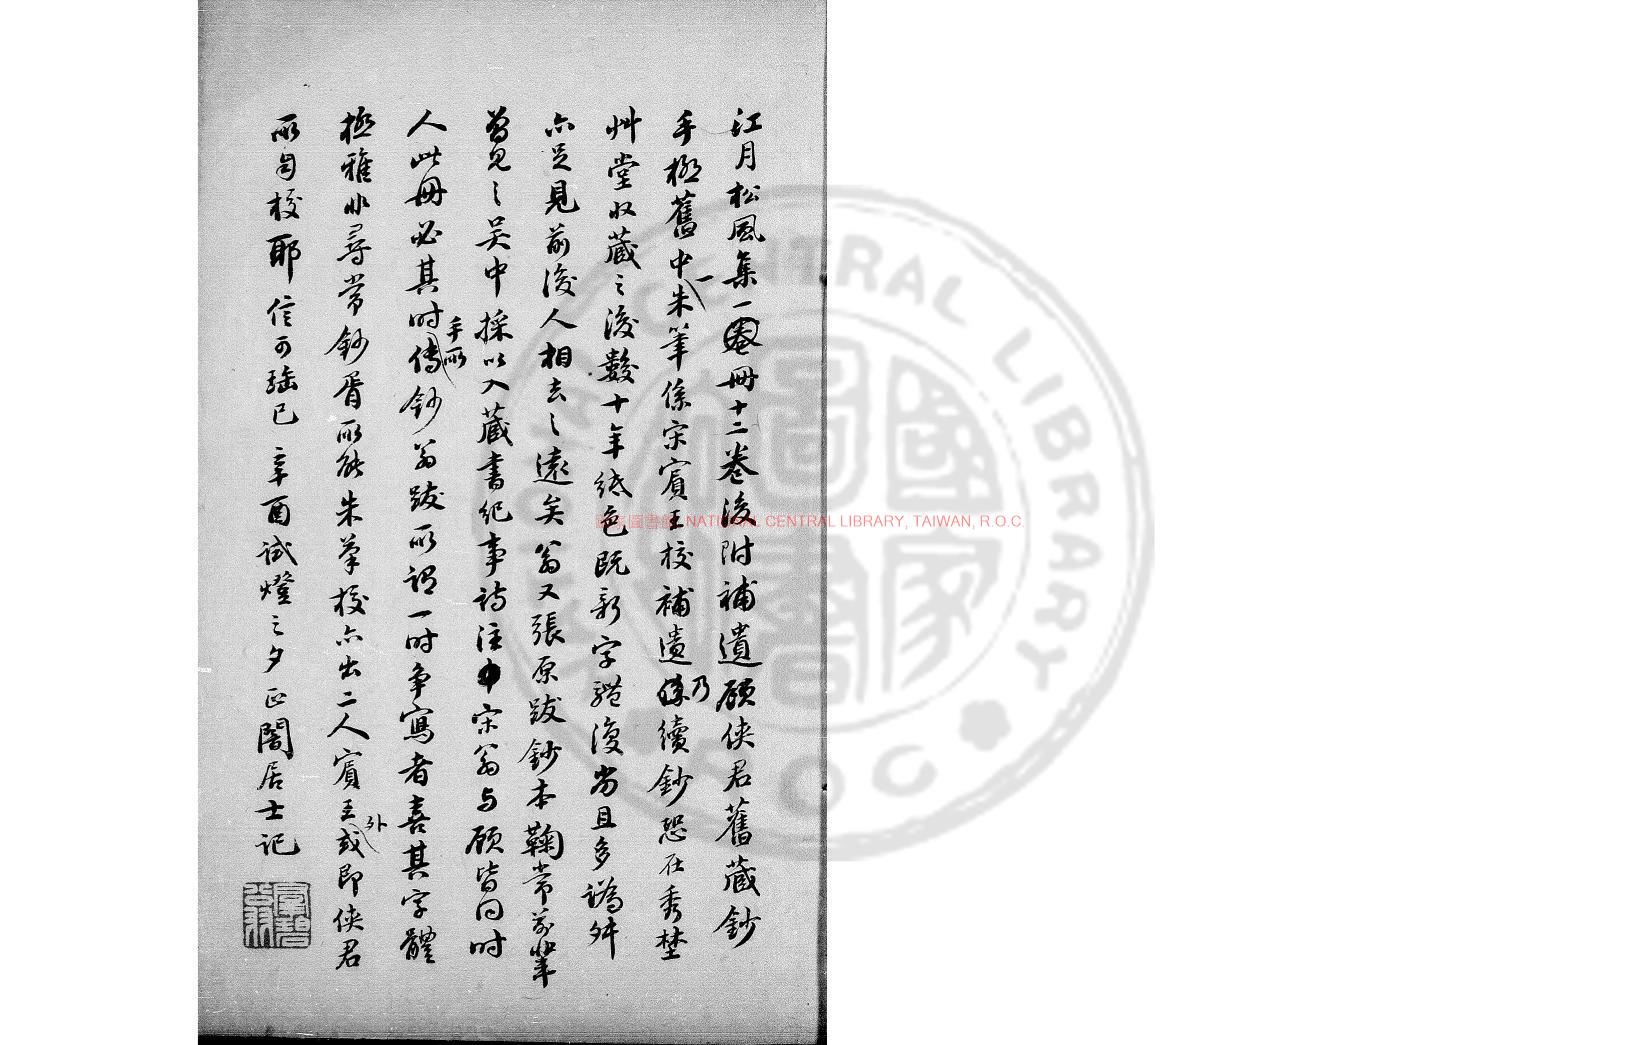 江月松風集一卷冊十二卷後附補遺顧俠君舊藏鈔
手極舊中一朱筆係宋賓王校補遺乃續鈔恐在秀埜
艸堂收藏之後數十年紙色既新字體復尚且多譌舛
亦足見前後人相去之遠矣翁又張原跋鈔本鞠常前輩
曾見之吳中採以入藏書紀事詩注中宋翁与顧皆同时
人此冊必其时傳手所鈔翁跋所謂一时争寫者喜其字體
極雅非尋常鈔胥所能朱筆校亦出二人賓王外或即俠君
所自校耶信可珤已辛酉試燈之夕正闇居士記
羣碧翁
國家圖書館 NATIONAL CENTRAL LIBRARY, TAIWAN, R.O.C.
NATIONAL CENTRAL LIBRARY
ROC
國家圖書